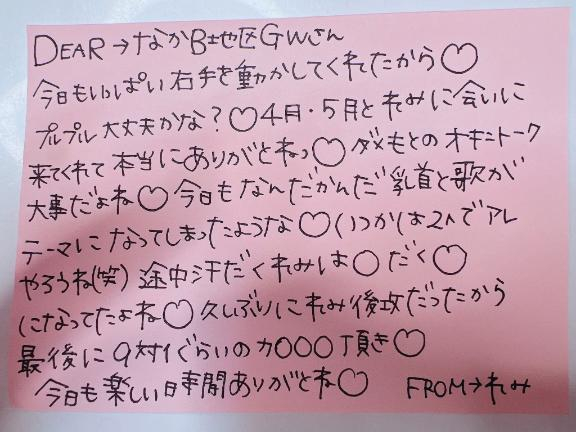 DEAR→なかB地区GWさん
今日もいっぱい右手を動かしてくれてたから♡
プルプル大丈夫かな?♡4月・5月とれみに会いに
来てくれて本当にありがとねっ♡ダメもとのオキニトーク
大事だよね♡今日もなんだかんだ乳首と歌が
テーマになってしまったような♡いつかは2人でアレ
やろうね(笑)途中汗だくれみはよ〇だく♡
になってたよね♡久しぶりにれみ後攻だったから
最後に9対1ぐらいのカ〇〇〇頂き♡
今日も楽しい時間ありがとね♡ FROM→れみ